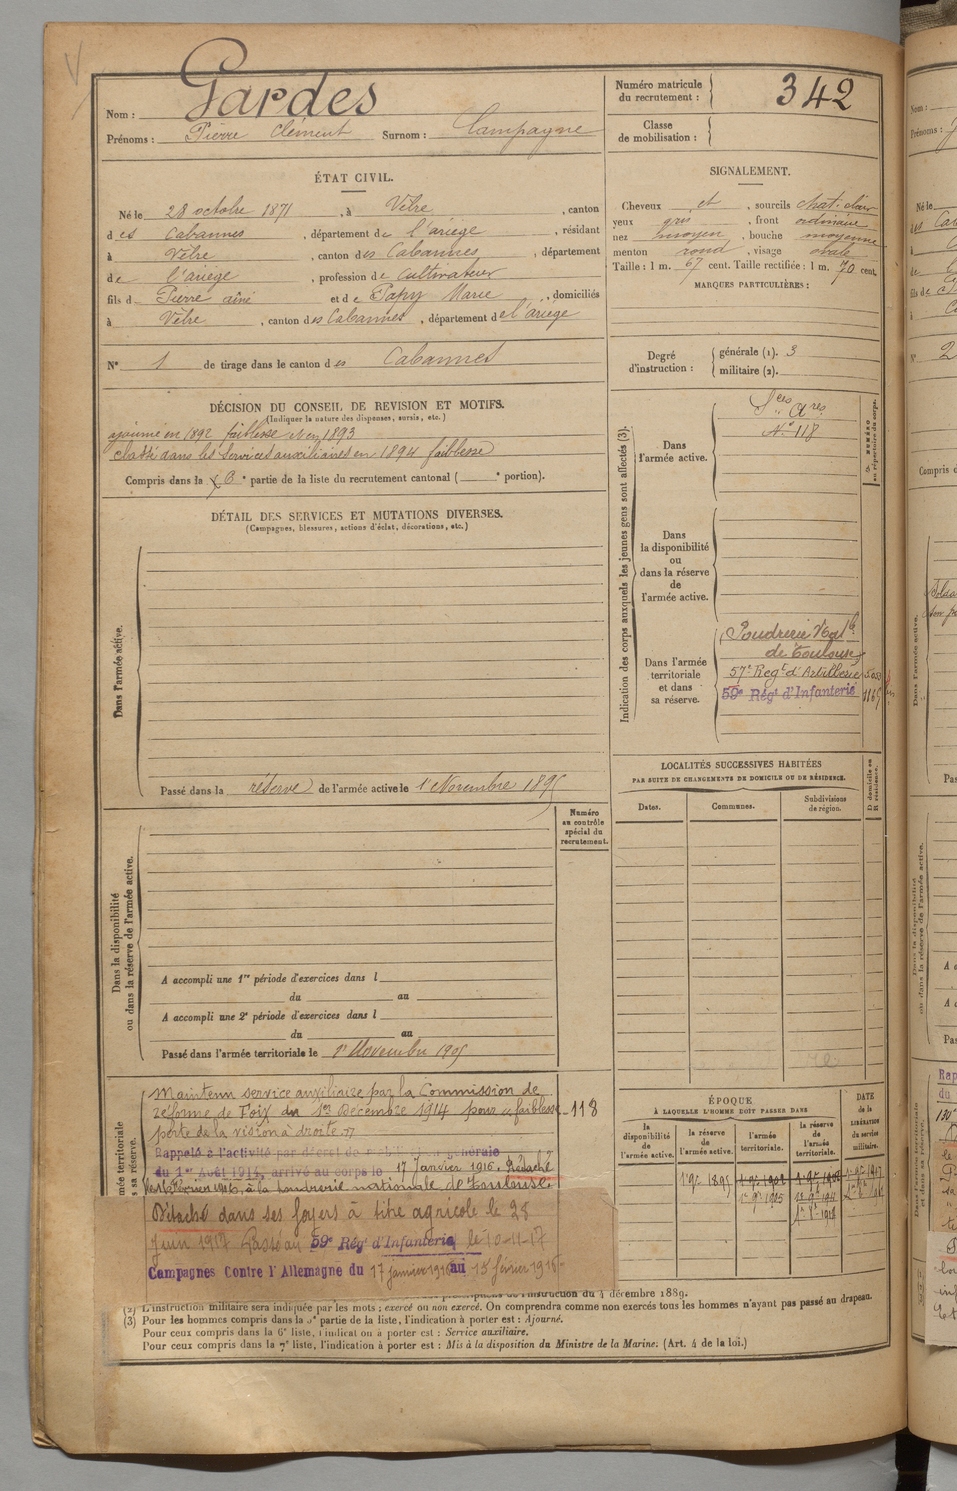 Nom : Gardes
Prénoms : Pierre Clément Surnom : Campagne
Numéro matricule du recrutement : 342
Classe de mobilisation :
ÉTAT CIVIL.
Né le 28 octobre 1871, à Vèbre, canton
des Cabannes, département de l'ariège, résidant
à Vèbre, canton des Cabannes, département
de l'ariège, profession de cultivateur
fils de Pierre ainé et de Papy Marie, domiciliés
à Vèbre, canton des Cabannes, département de l'ariège
N° 1 de tirage dans le canton des Cabannes
SIGNALEMENT.
Cheveux et, sourcils chat. clair
yeux gris, front ordinaire
nez moyen, bouche moyenne
menton rond, visage ovale
Taille : 1 m. 67 cent. Taille rectifiée : 1 m. 70 cent.
MARQUES PARTICULIÈRES :
Degré d'instruction : générale (1). 3
militaire (2).
DÉCISION DU CONSEIL DE REVISION ET MOTIFS.
(Indiquer la nature des dispenses, sursis, etc.)
ajourné en 1892 faiblesse et en 1893
classé dans les services auxiliaires en 1894 faiblesse
Compris dans la 6e partie de la liste du recrutement cantonal ( e portion).
DÉTAIL DES SERVICES ET MUTATIONS DIVERSES.
(Campagnes, blessures, actions d'éclat, décorations, etc.)
Dans l'armée active.
Passé dans la réserve de l'armée active le 1er Novembre 1895
Indication des corps auxquels les jeunes gens sont affectés (3).
N° NUMÉRO au répertoire du corps.
Dans l'armée active.
Sces Ares
N° 118
Dans la disponibilité ou dans la réserve de l'armée active.
Dans l'armée territoriale et dans sa réserve.
Poudrerie Natle
de Toulouse
57e Regt d'Artillerie
59e Régt d'Infanterie
LOCALITÉS SUCCESSIVES HABITÉES
PAR SUITE DE CHANGEMENTS DE DOMICILE OU DE RÉSIDENCE.
Dates. Communes. Subdivisions de région. D domicile ou R résidence.
Numéro au contrôle spécial du recrutement.
Dans la disponibilité ou dans la réserve de l'armée active.
A accompli une 1re période d'exercices dans l
du au
A accompli une 2e période d'exercices dans l
du au
Passé dans l'armée territoriale le 1er Novembre 1905
Maintenu service auxiliaire par la Commission de
réforme de Foix du 1er Décembre 1914 pour "faiblesse 118
perte de la vision à droite"
Rappelé à l'activité par décret de mobilisation générale
du 1er Août 1914, arrivé au corps le 17 Janvier 1916. Détaché
à la poudrerie nationale de Toulouse.
Détaché dans ses foyers à titre agricole le 28
Juin 1917 Passé au 59e Régt d'Infanterie le 10-11-17
Campagnes Contre l'Allemagne du 17 janvier 1916 au 15 février 1916
ÉPOQUE
À LAQUELLE L'HOMME DOIT PASSER DANS
la disponibilité de l'armée active. la réserve de l'armée active. l'armée territoriale. la réserve de l'armée territoriale. DATE de la LIBÉRATION du service militaire.
1er 9bre 1895
d'instruction du 4 décembre 1889.
(2) L'instruction militaire sera indiquée par les mots : exercé ou non exercé. On comprendra comme non exercés tous les hommes n'ayant pas passé au drapeau.
(3) Pour les hommes compris dans la 5e partie de la liste, l'indication à porter est : Ajourné.
Pour ceux compris dans la 6e liste, l'indication à porter est : Service auxiliaire.
Pour ceux compris dans la 7e liste, l'indication à porter est : Mis à la disposition du Ministre de la Marine. (Art. 4 de la loi.)